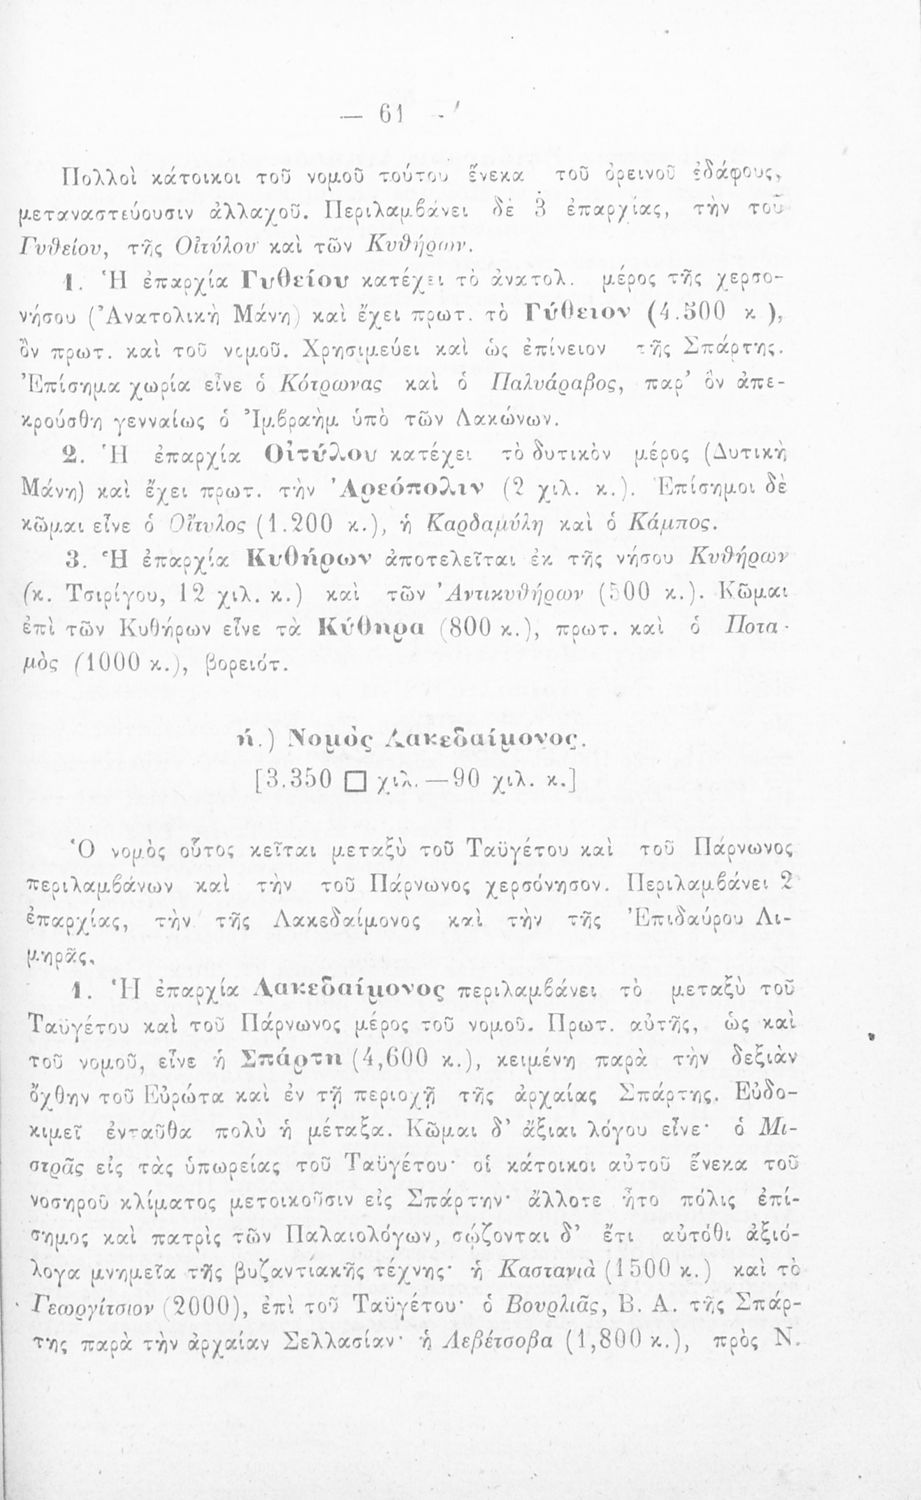 — 61 -
Πολλοὶ κάτοικοι τοῦ νομοῦ τούτου ἕνεκα τοῦ ὀρεινοῦ ἐδάφους,
μεταναστεύουσιν ἀλλαχοῦ. Περιλαμβάνει δὲ 3 ἐπαρχίας, τὴν τοῦ
Γυθείου, τῆς Οἰτύλου καὶ τῶν Κυθήρων.
1. Ἡ ἐπαρχία Γυθείου κατέχει τὸ ἀνατολ. μέρος τῆς χερσο-
νήσου (Ἀνατολικὴ Μάνη) καὶ ἔχει πρωτ. τὸ Γύθειον (4.500 κ ),
ὃν πρωτ. καὶ τοῦ νομοῦ. Χρησιμεύει καὶ ὡς ἐπίνειον τῆς Σπάρτης.
Ἐπίσημα χωρία εἶνε ὁ Κότρωνας καὶ ὁ Παλυάραβος, παρ’ ὃν ἀπε-
κρούσθη γενναίως ὁ Ἰμβραὴμ ὑπὸ τῶν Λακώνων.
2. Ἡ ἐπαρχία Οἰτύλου κατέχει τὸ δυτικὸν μέρος (Δυτικὴ
Μάνη) καὶ ἔχει πρωτ. τὴν Ἀρεόπολιν (2 χιλ. κ.). Ἐπίσημοι δὲ
κῶμαι εἶνε ὁ Οἴτυλος (1.200 κ.), ἡ Καρδαμύλη καὶ ὁ Κάμπος.
3. Ἡ ἐπαρχία Κυθήρων ἀποτελεῖται ἐκ τῆς νήσου Κυθήρων
(κ. Τσιρίγου, 12 χιλ. κ.) καὶ τῶν Ἀντικυθήρων (500 κ.). Κῶμαι
ἐπὶ τῶν Κυθήρων εἶνε τὰ Κύθηρα (800 κ.), πρωτ. καὶ ὁ Ποτα-
μὸς (1000 κ.), βορειότ.
ή.) Νομὸς Λακεδαίμονος.
[3.350 □ χιλ.—90 χιλ. κ.]
Ὁ νομὸς οὗτος κεῖται μεταξὺ τοῦ Ταϋγέτου καὶ τοῦ Πάρνωνος
περιλαμβάνων καὶ τὴν τοῦ Πάρνωνος χερσόνησον. Περιλαμβάνει 2
ἐπαρχίας, τὴν τῆς Λακεδαίμονος καὶ τὴν τῆς Ἐπιδαύρου Λι-
μηρᾶς.
1. Ἡ ἐπαρχία Λακεδαίμονος περιλαμβάνει τὸ μεταξὺ τοῦ
Ταϋγέτου καὶ τοῦ Πάρνωνος μέρος τοῦ νομοῦ. Πρωτ. αὐτῆς, ὡς καὶ
τοῦ νομοῦ, εἶνε ἡ Σπάρτη (4,600 κ.), κειμένη παρὰ τὴν δεξιὰν
ὄχθην τοῦ Εὐρώτα καὶ ἐν τῇ περιοχῇ τῆς ἀρχαίας Σπάρτης. Εὐδο-
κιμεῖ ἐνταῦθα πολὺ ἡ μέταξα. Κῶμαι δ’ ἄξιαι λόγου εἶνε· ὁ Μι-
στρᾶς εἰς τὰς ὑπωρείας τοῦ Ταϋγέτου· οἱ κάτοικοι αὐτοῦ ἕνεκα τοῦ
νοσηροῦ κλίματος μετοικοῦσιν εἰς Σπάρτην· ἄλλοτε ἦτο πόλις ἐπί-
σημος καὶ πατρὶς τῶν Παλαιολόγων, σῴζονται δ’ ἔτι αὐτόθι ἀξιό-
λογα μνημεῖα τῆς βυζαντιακῆς τέχνης· ἡ Καστανιὰ (1500 κ.) καὶ τὸ
Γεωργίτσιον (2000), ἐπὶ τοῦ Ταϋγέτου· ὁ Βουρλιᾶς, Β. Α. τῆς Σπάρ-
της παρὰ τὴν ἀρχαίαν Σελλασίαν· ἡ Λεβέτσοβα (1,800 κ.), πρὸς Ν.